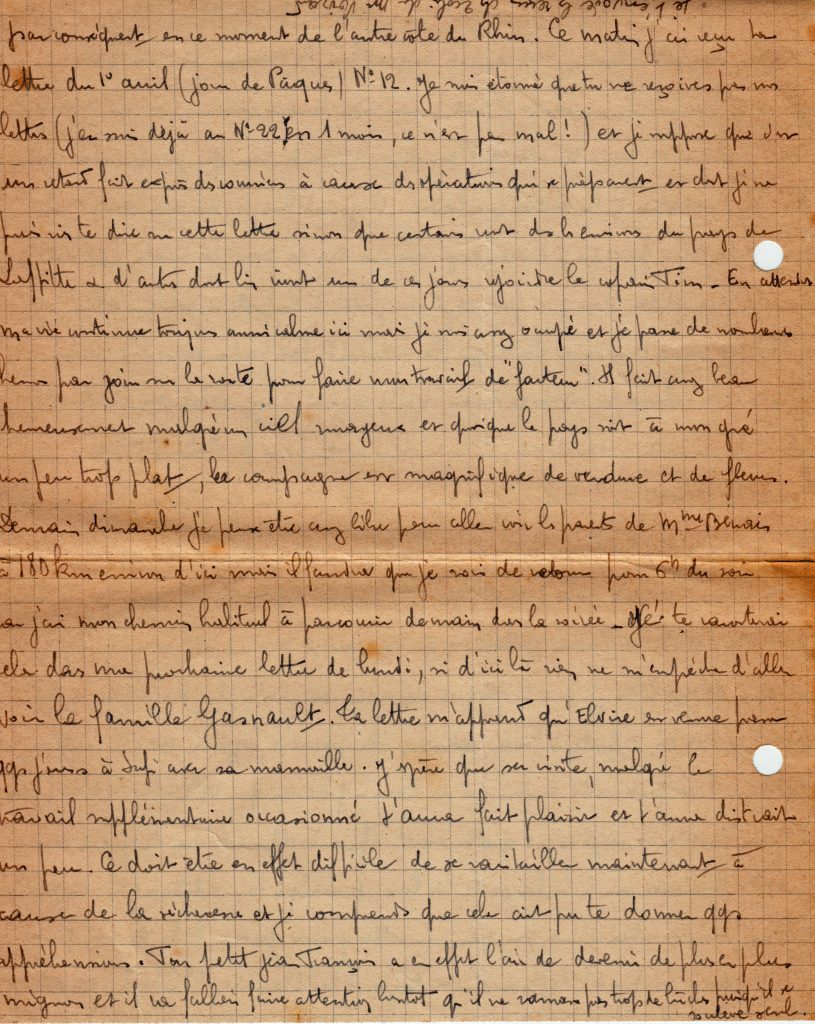 je t'envoie le
par conséquent en ce moment de l'autre côté du Rhin. Ce matin j'ai reçu ta
lettre du 1er avril (jour de Pâques) N° 12. Je suis étonné que tu ne reçoives pas mes
lettres (j'en suis déjà au N° 22 en 1 mois, ce n'est pas mal!) et je suppose que c'est
un retard fait exprès des courriers à cause des opérations qui se préparent et dont je ne
puis rien te dire sur cette lettre sinon que certains sont ds les environs du pays de
Laffitte & d'autres dont iront un de ces jours rejoindre le copain Tim - En attendant
ma vie continue toujours aussi calme ici mais je suis assez occupé et je passe de nombreuses
heures par jour sur la route pour faire mon travail de "facteur". Il fait assez beau
heureusement malgré un ciel nuageux et quoique le pays soit à mon gré
un peu trop plat, la campagne est magnifique de verdure et de fleurs.
Demain dimanche je peux être assez libre pour aller voir les parents de Mme
à 180 km environ d'ici mais il faudra que je sois de retour pour 6h du soir
car j'ai mon chemin habituel à parcourir demain dans la soirée - Je te raconterai
cela dans ma prochaine lettre de lundi, si d'ici là rien ne m'empêche d'aller
voir la famille Gasnault. Ta lettre m'apprend qu'Elvire est venue passer
qqs jours à avec sa marmaille. J'espère que sa visite, malgré le
travail supplémentaire occasionné t'aura fait plaisir et t'aura distrait
un peu. Ce doit être en effet difficile de se ravitailler maintenant à
cause de la sécheresse et je comprends que cela ait pu te donner qqs
appréhensions. Ton petit Jean François a en effet l'air de devenir de plus en plus
mignon et il va falloir faire attention bientôt qu'il ne ramasse pas trop de bûches puisqu'il se
soulève seul.